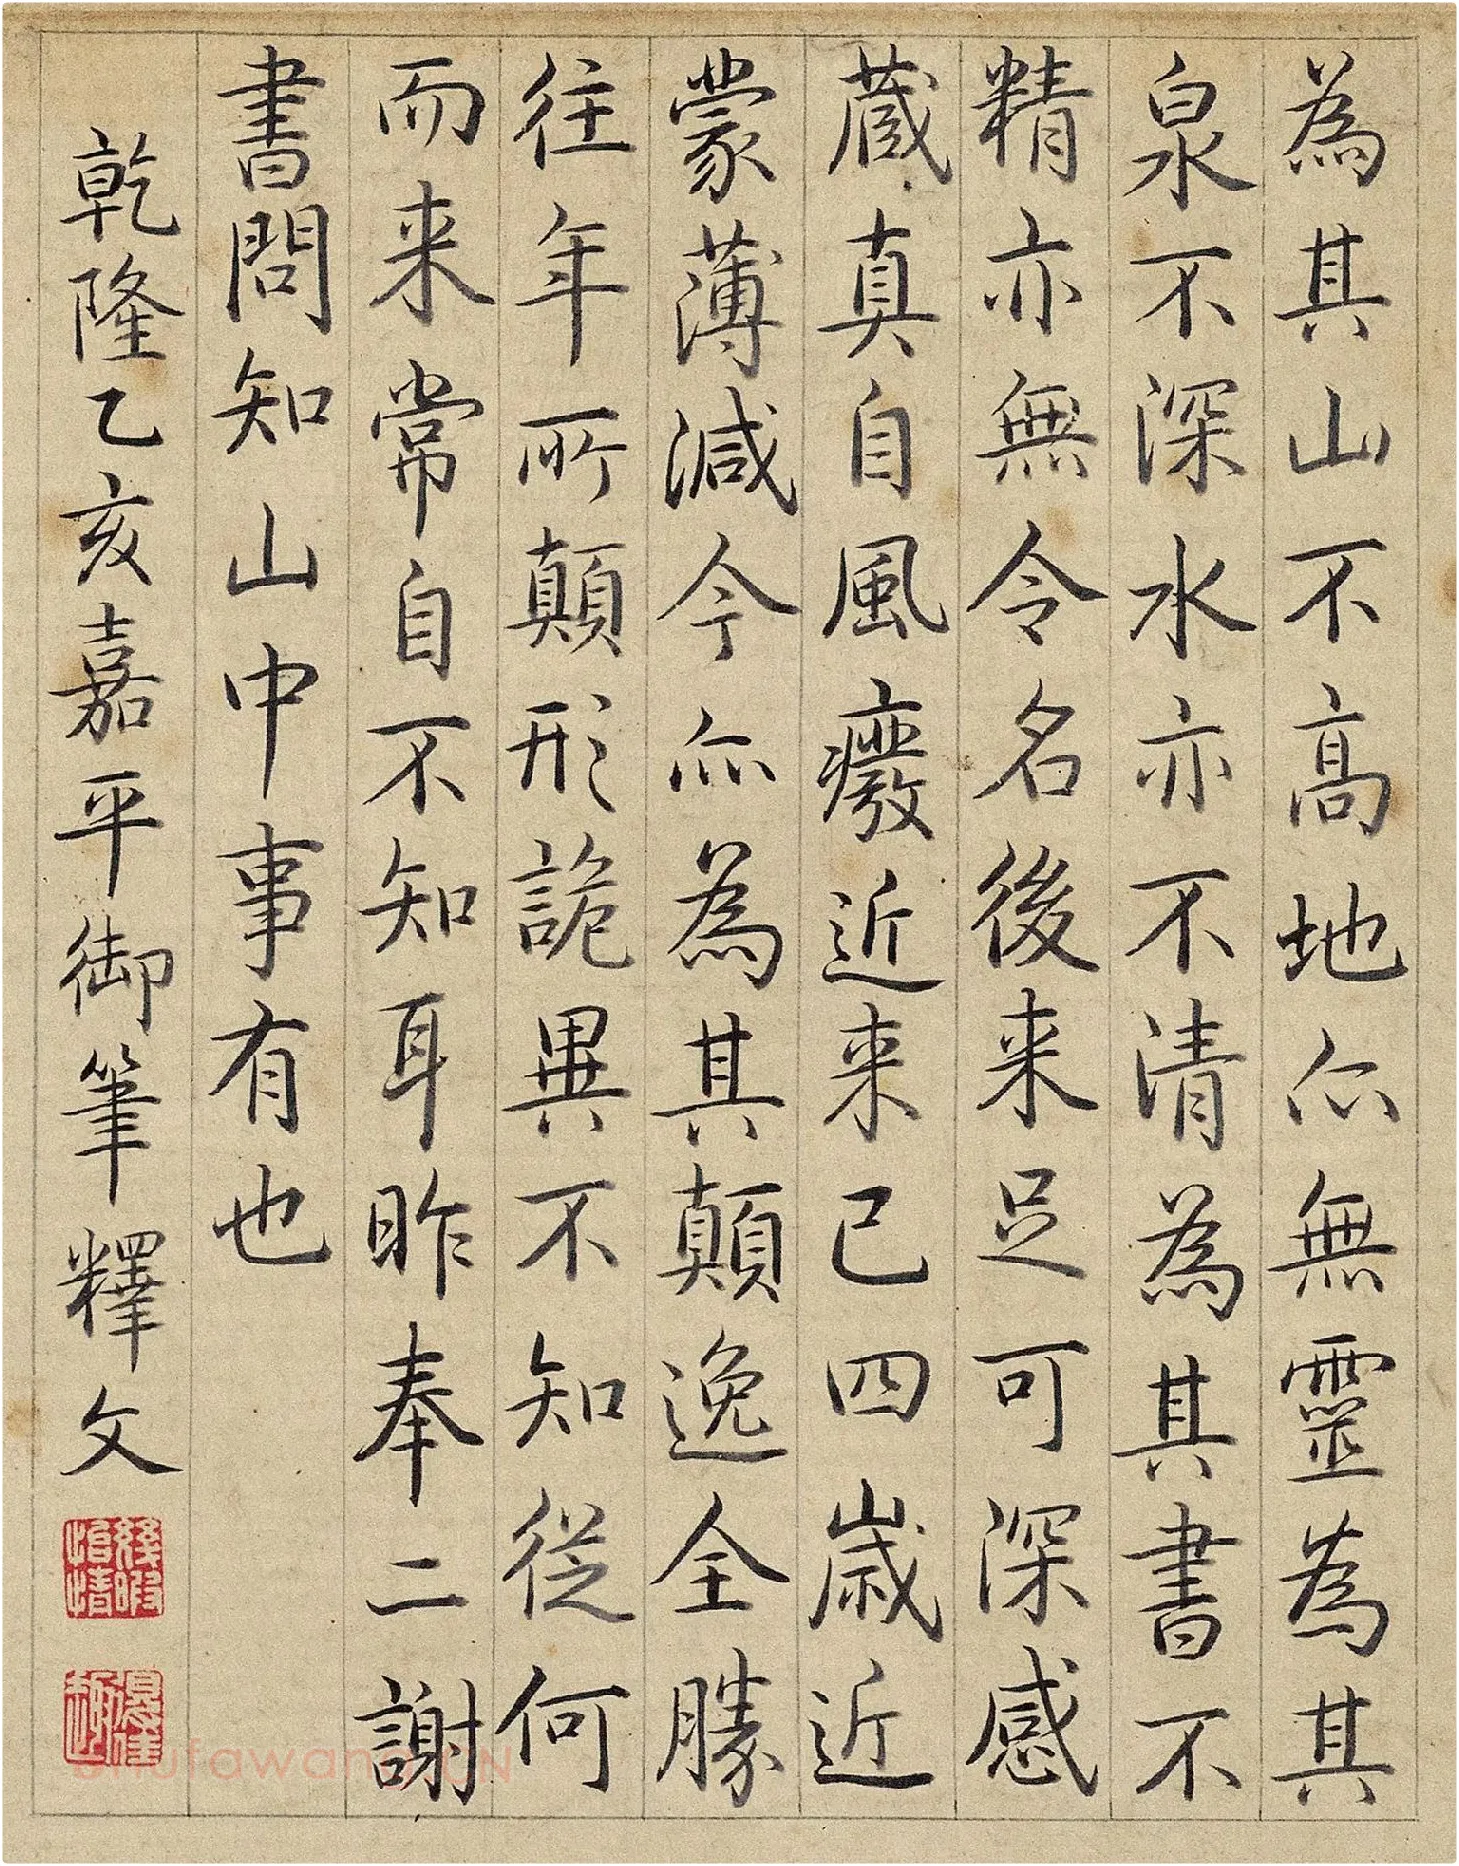 為其山不高地亦無靈為其
泉不深水亦不清為其書不
精亦無令名後来足可深感
藏真自風癈近来已四歳近
蒙薄減今亦為其顛逸全勝
往年所顛形詭異不知從何
而来常自不知耳昨奉二謝
書問知山中事有也
乾隆乙亥嘉平御筆釋文
幾暇怡情
shufawang.CN